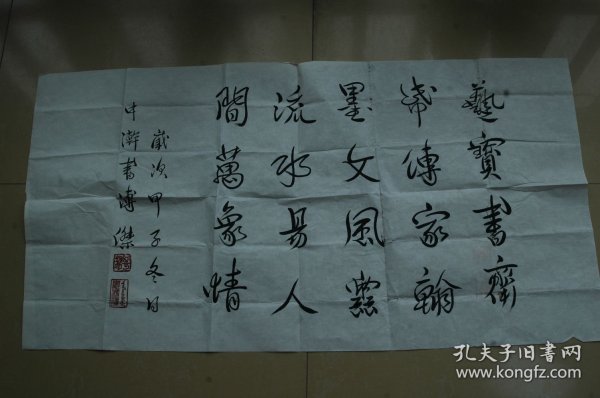 藝寶書齋
傳家翰
墨文風
流水易人
間萬象情
歲次甲子冬日
書溥傑
孔夫子旧书网
www.kongfz.com